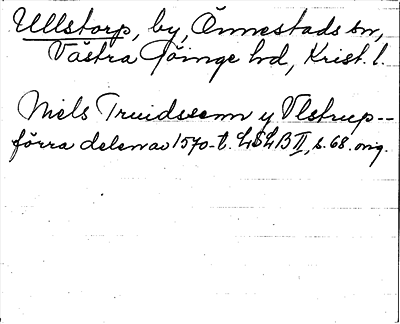 Ullstorp, by, Önnestads sn,
Västra Göinge hd, Krist. l.
Niels Truidssenn y Vlstrup--
förra delen av 1570-t. LSLB II, s. 68. orig.